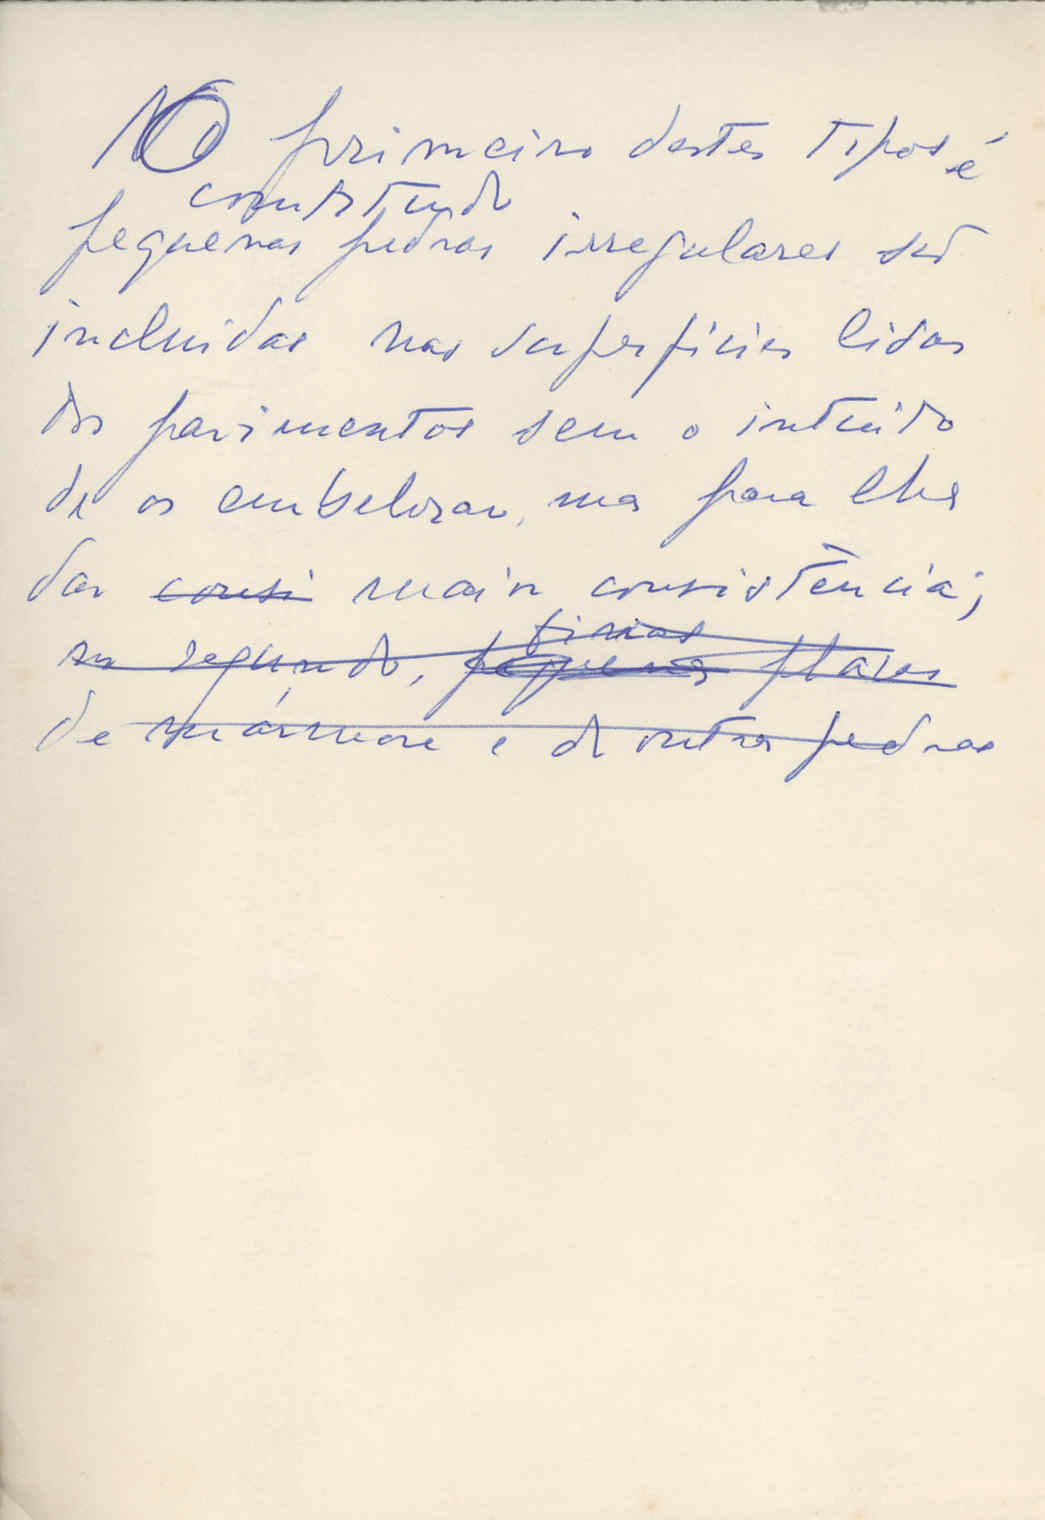 No primeiro destes tipos é
constituido
pequenas pedras irregulares são
incluidas nas superfícies lisas
dos pavimentos sem o intuito
de os embelezar, mas para lhes
dar consi maior consistência;
no segundo, pequenas finas placas
de mármore e de outras pedras